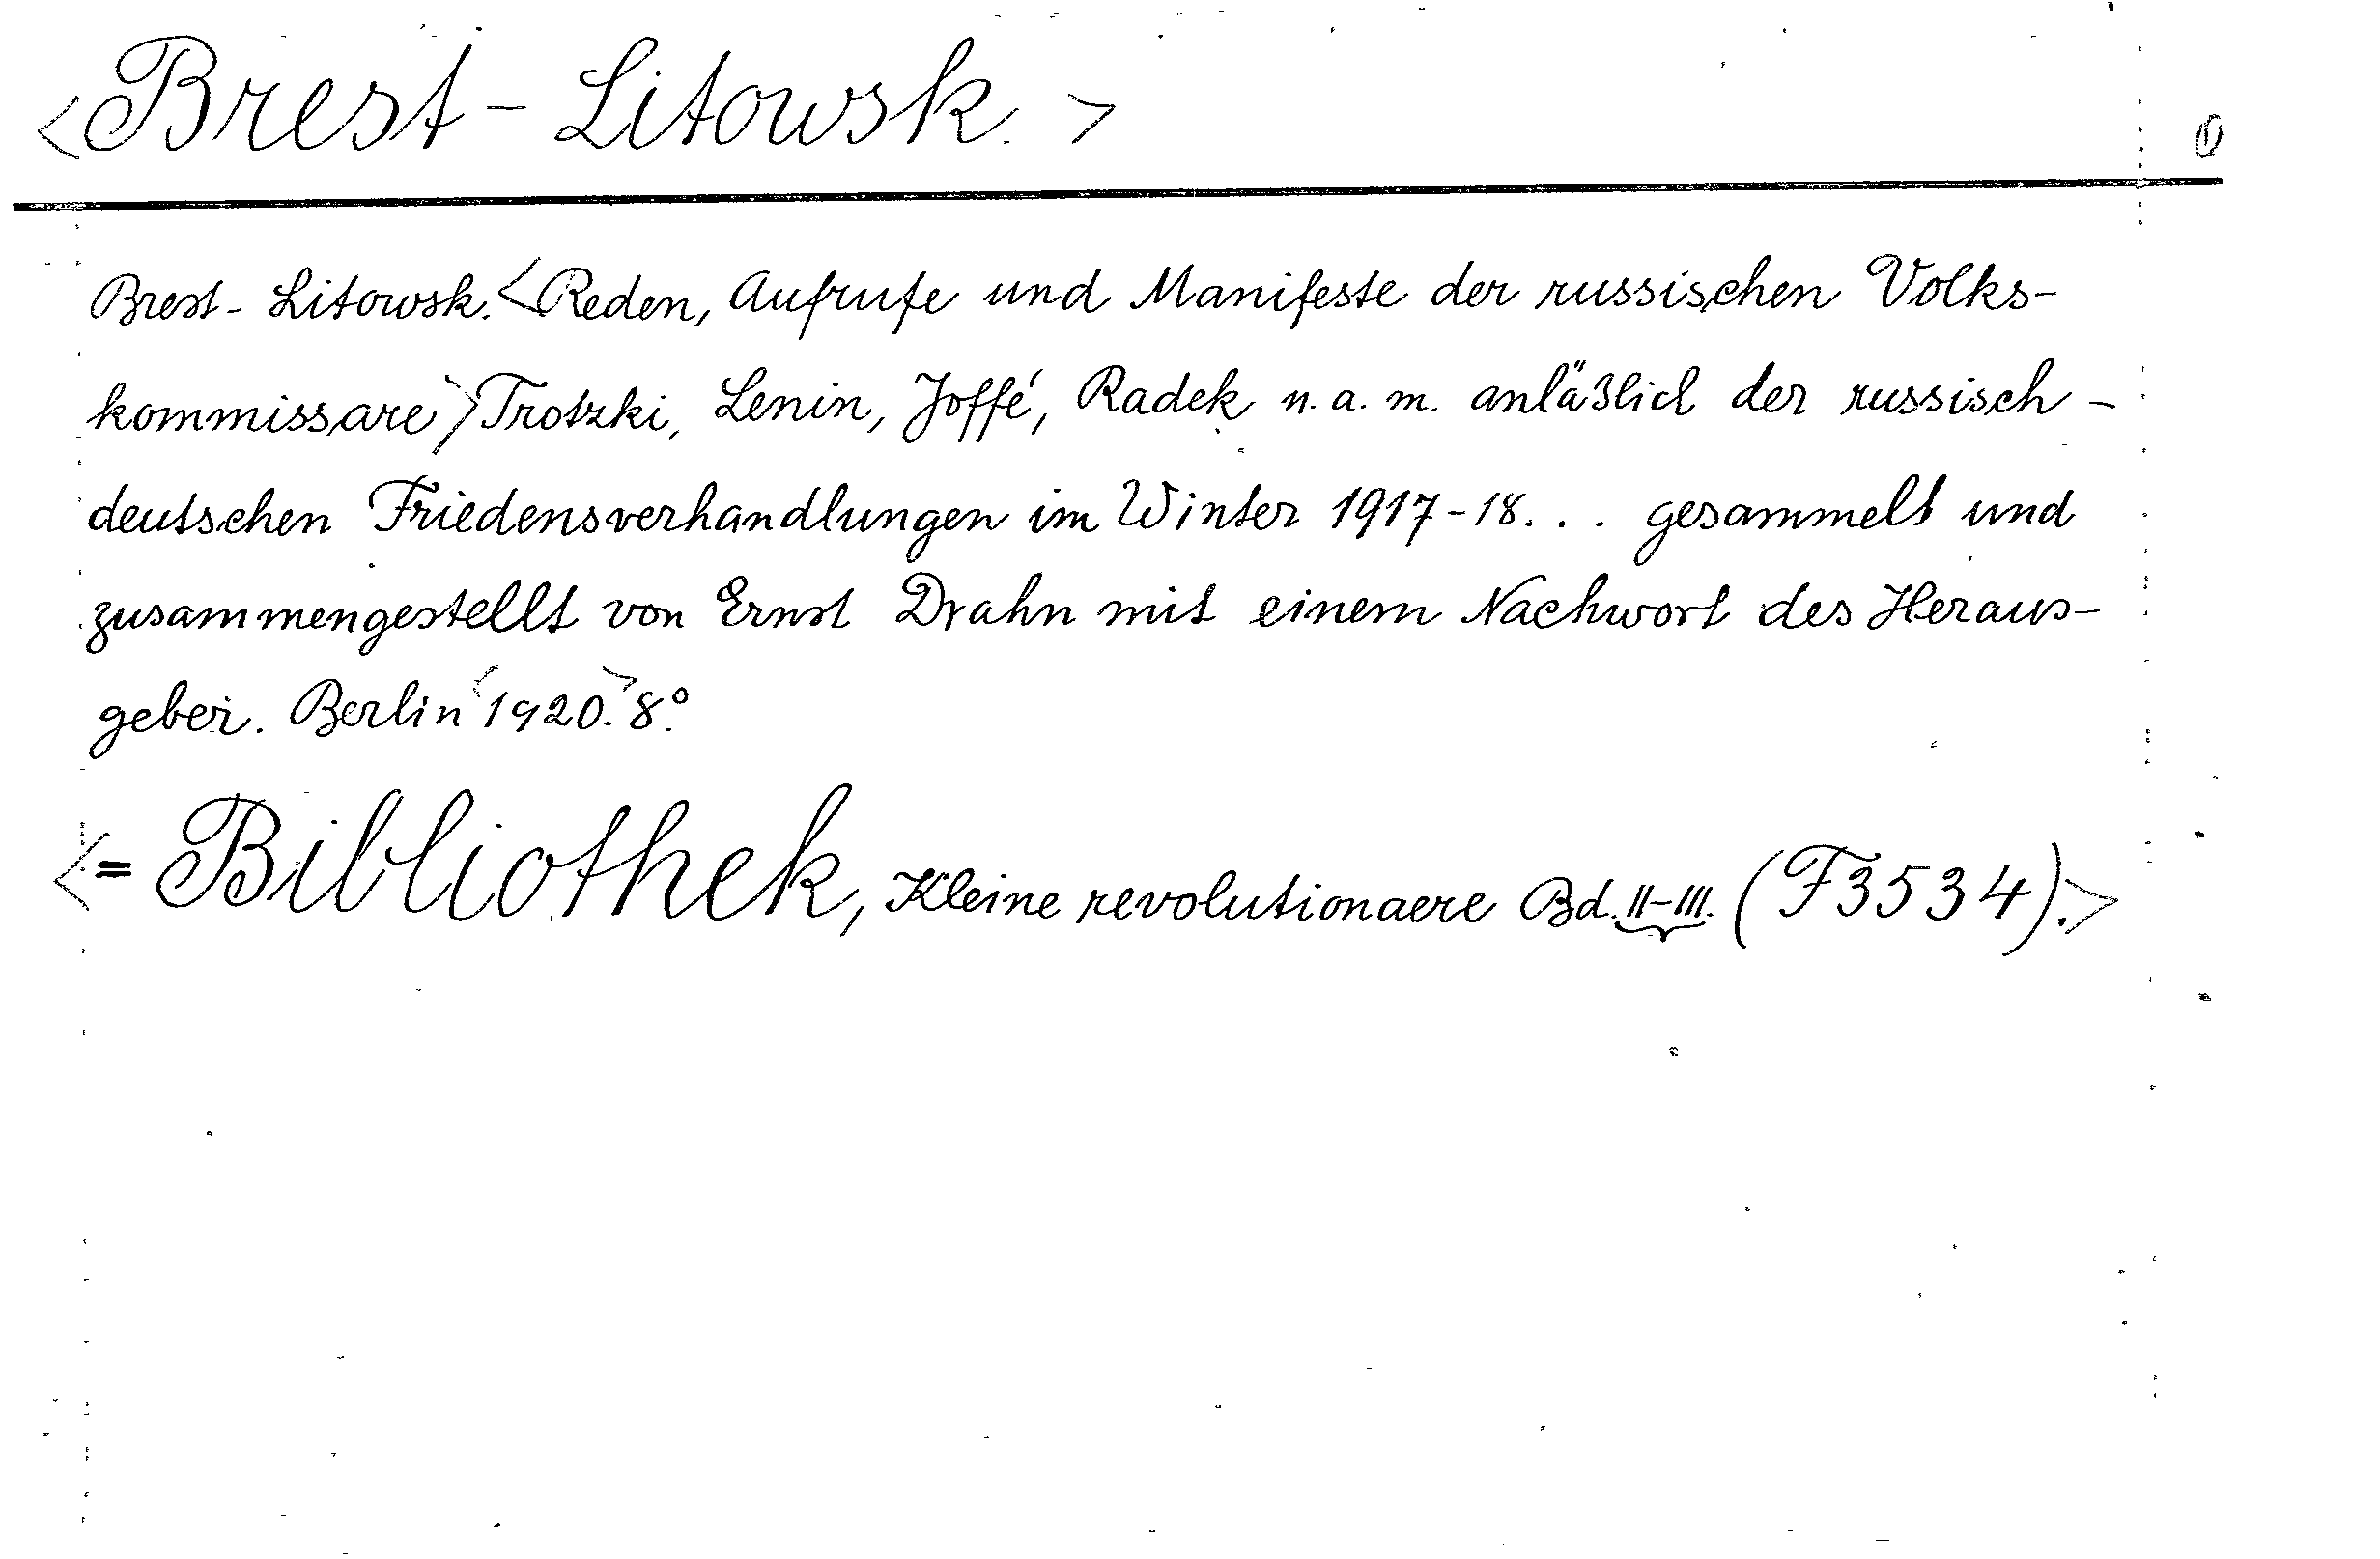 <Brest-Litowsk.> 0
Brest-Litowsk. <Reden, Aufrufe und Manifeste der russischen Volks-
kommissare> Trotzki, Lenin, Joffé, Radek u. a. m. anläßlich der russisch-
deutschen Friedensverhandlungen im Winter 1917-18... gesammelt und
zusammengestellt von Ernst Drahn mit einem Nachwort des Heraus-
geber. Berlin <1920.> 8°.
<= Bibliothek, Kleine revolutionaere Bd. II-III. (F3534).>